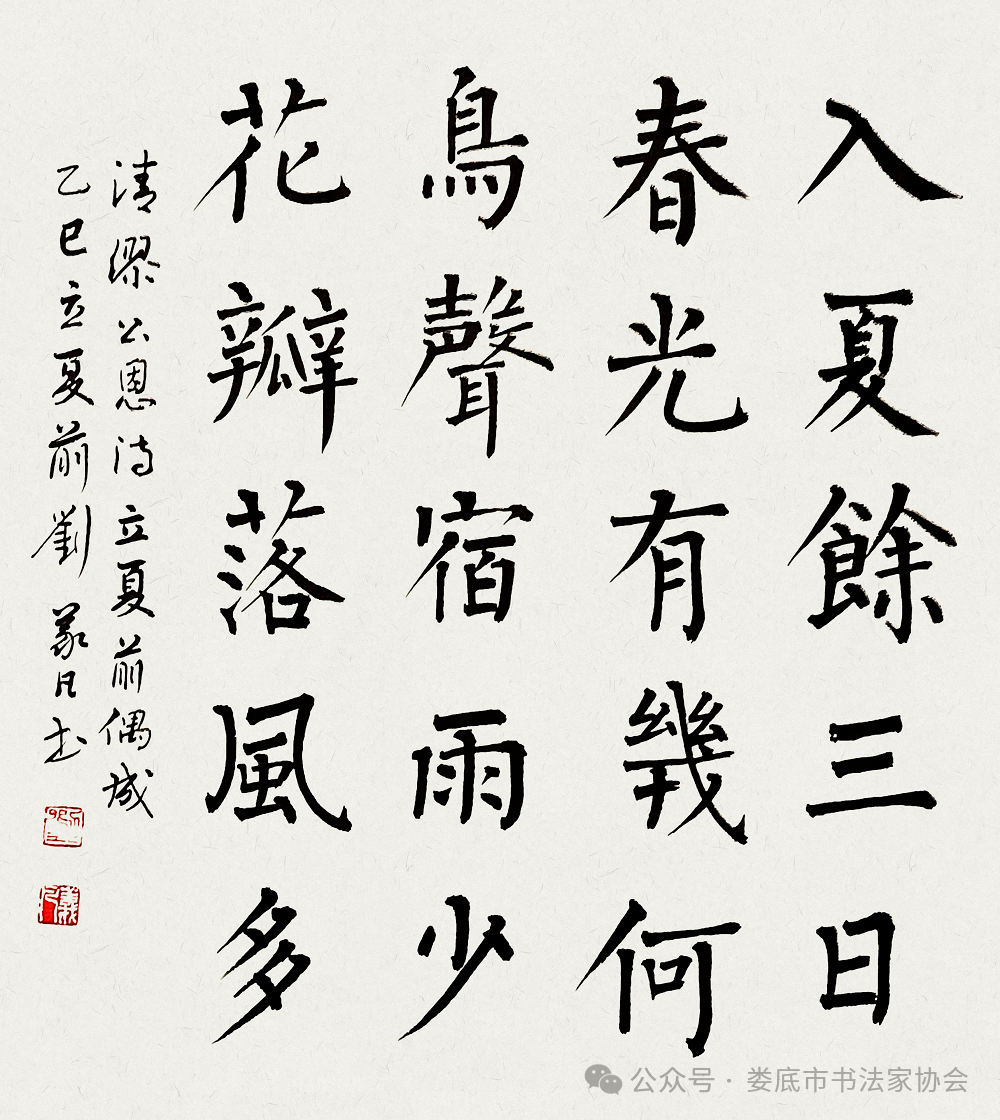 入夏餘三日
春光有幾何
鳥聲宿雨少
花瓣落風多
清缪公恩诗立夏前偶成
乙巳立夏前劉義凡书
公众号 · 娄底市书法家协会